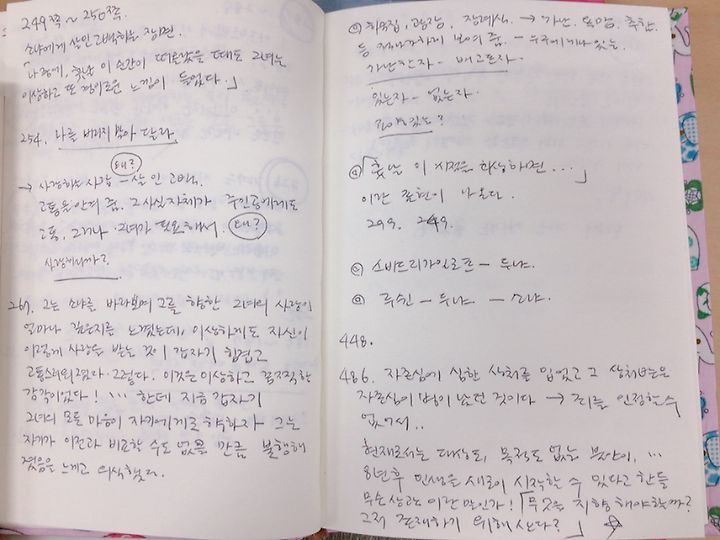 249쪽 ~ 250쪽.
소냐에게 살인 고백하는 장면.
「나중에, 훗날 이 순간이 떠올랐을 때도 그녀는
이상하고 또 경이로운 느낌이 들었다.」
254. 나를 버리지 말아 달라
왜?
→ 사랑하는 사람 - 살인 고백.
고통을 안겨 줌. 그 사실 자체가 주인공에게도
고통, 그러나 그녀가 필요해서. 왜?
사랑하니까?
267. 그는 소냐를 바라보며 그를 향한 그녀의 사랑이
얼마나 깊은지를 느꼈는데, 이상하게도 자신이
이렇게 사랑을 받는 것이 갑자기 힘겹고
고통스러워졌다. 그렇다. 이것은 이상하고 끔찍한
감정이었다! … 한데 지금 갑자기
그녀의 모든 마음이 자기에게로 향하자 그는
자기가 이전과 비교할 수도 없을 만큼 불행해
졌음을 느끼고 의식했다.
광장, 장례식. → 가난, 욕망, 추함.
등 적나라하게 보여 줌. - 누구에게나 있는.
가난한 자 - 배고프다.
있는 자 - 없는 자.
훗날 이 시점을 회상하면…」
이란 표현이 나온다.
299. 249.
스비드리가일로프 - 두냐.
루쥔 - 두냐 - 소냐.
448.
486. 자존심에 심한 상처를 입었고 그 상처받은
자존심이 병이 났던 것이다 → 죄를 인정할 수
없어서..
현재로서는 대상도, 목적도 없는 불안이, …
8년 후 인생을 새로이 시작할 수 있다고 한들
무슨 상관이란 말인가! 「무엇을 지향해야 할까?
그저 존재하기 위해 산다?」